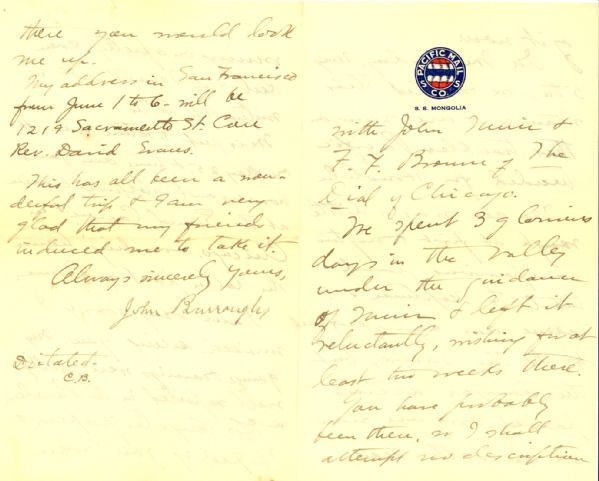 there you would look
me up.
My address in San Francisco
from June 1 to 6 - will be
1219 Sacramento St. Care
Rev. David Evans.
This has all been a won-
derful trip & I am very
glad that my friends
induced me to take it.
Always sincerely yours,
John Burroughs
Dictated.
C.B.
PACIFIC MAIL
S S
CO.
S. S. MONGOLIA
with John Muir &
F. F. Browne of The
Dial of Chicago.
We spent 3 glorious
days in the valley
under the guidance
of Muir & left it
reluctantly, wishing for at
least two weeks there.
You have probably
been there, so I shall
attempt no description